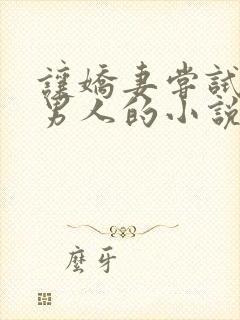 讓嬌妻嘗試
男人的小說
麼牙